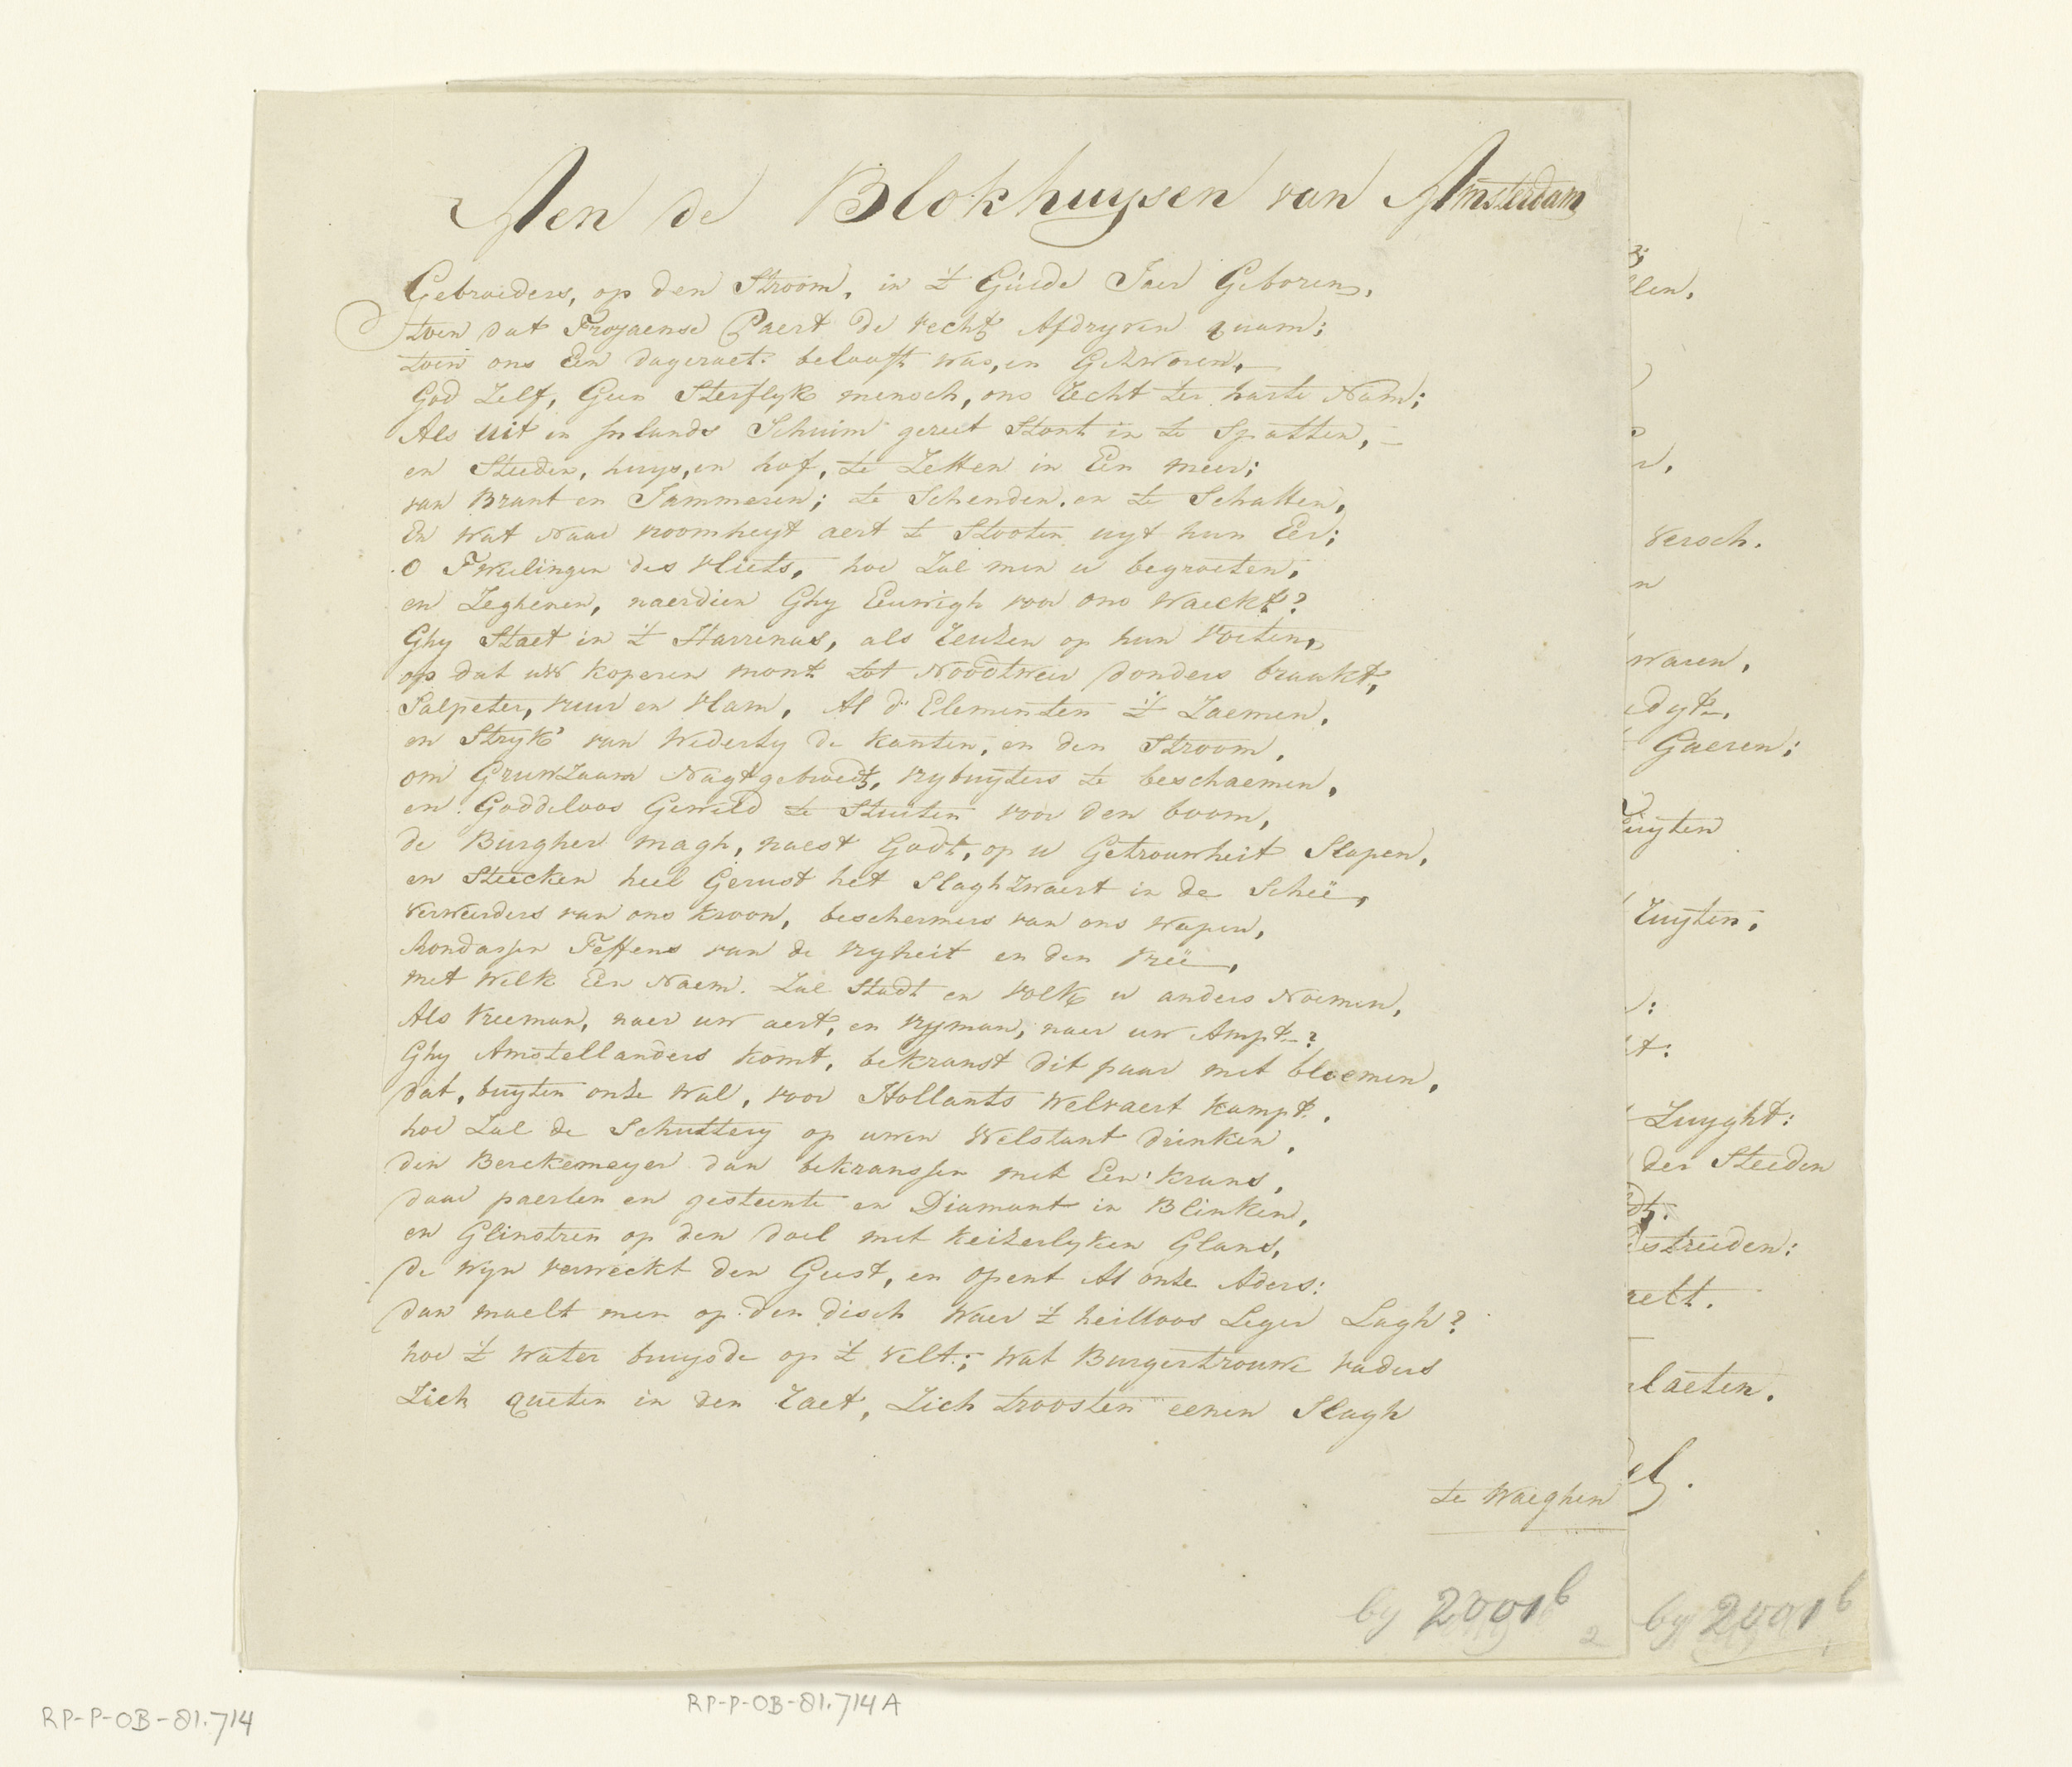 Aen de Blokhuysen van Amsterdam
Gebroeders, op den Stroom, in 't Gúide Jaer Geboren,
toen dat Troyaense Paert de vecht Afdryven quam;
toen ons Een dageraet belooft was, en Gezworen,
God Zelf, Geen Sterflyk mensch, ons Recht ter harte Nam;
Als uit en Inlands Schuim gereet Stont in te Spatten,
en Steeden, huys, en hof, te Zetten in Een meer;
van Brant en Jammeren; te Schenden, en te Schatten,
En wat Naar vroomheyt aert te Stooten uyt hun Eer;
O Tweelingen des Vliets, hoe Zal men u begroeten,
en Zeghenen, naerdien Ghy Eeuwigh voor ons Waeckt?
Ghy Staet in 't Harrenas, als Reuzen op hun Voeten,
op dat uw koperen mont tot Noodtweer donders braakt,
Salpeter, vuur en Vlam, Al d' Elementen 't Zaemen,
en Stryk' van Wederzy de kanten, en den Stroom,
om GruwZaam Nagtgebroedt, vrybuyters te beschaemen,
en Goddeloos Geweld te Stuiten voor den boom,
de Burgher magh, naest Godt, op u Getrouwheit Slapen,
en Steecken heel Gerust het SlaghZwaert in de Scheê,
Verweerders van ons Kroon, beschermers van ons Wapen,
Rondassen Teffens van de vryheit en den vreê,
met Welk Een Naem. Zal Stadt en volk u anders Noemen,
Als Vreeman, naer uw aert, en vryman, naer uw Ampt?
Ghy Amstellanders komt, bekranst dit paar met bloemen,
dat, buyten onze Wal, voor Hollants Welvaert kampt.
hoe Zal de Schuttery op uwen Welstant drinken,
den Berckemeyer dan bekranssen met Een krans,
daar paerlen en gesteente en Diamant in Blinken,
en Glinstren op den doel met keizerlyken Glans,
de wyn verweckt den Geest, en opent Al onze Aders:
dan maelt men op den disch Waer 't heilloos Leger Lagh?
hoe 't Water bruysde op 't Velt; Wat Burgertrouwe vaders
Zich queten in den Raet, Zich troosten eenen Slagh
te Waeghen
by 2001b
2
len,
Versch.
n
waren,
Gaeren;
uyten
Zuyten,
Zuyght:
der Steeden
streeden:
laeten.
by 2001b
1
RP-P-OB-81.714
RP-P-OB-81.714A